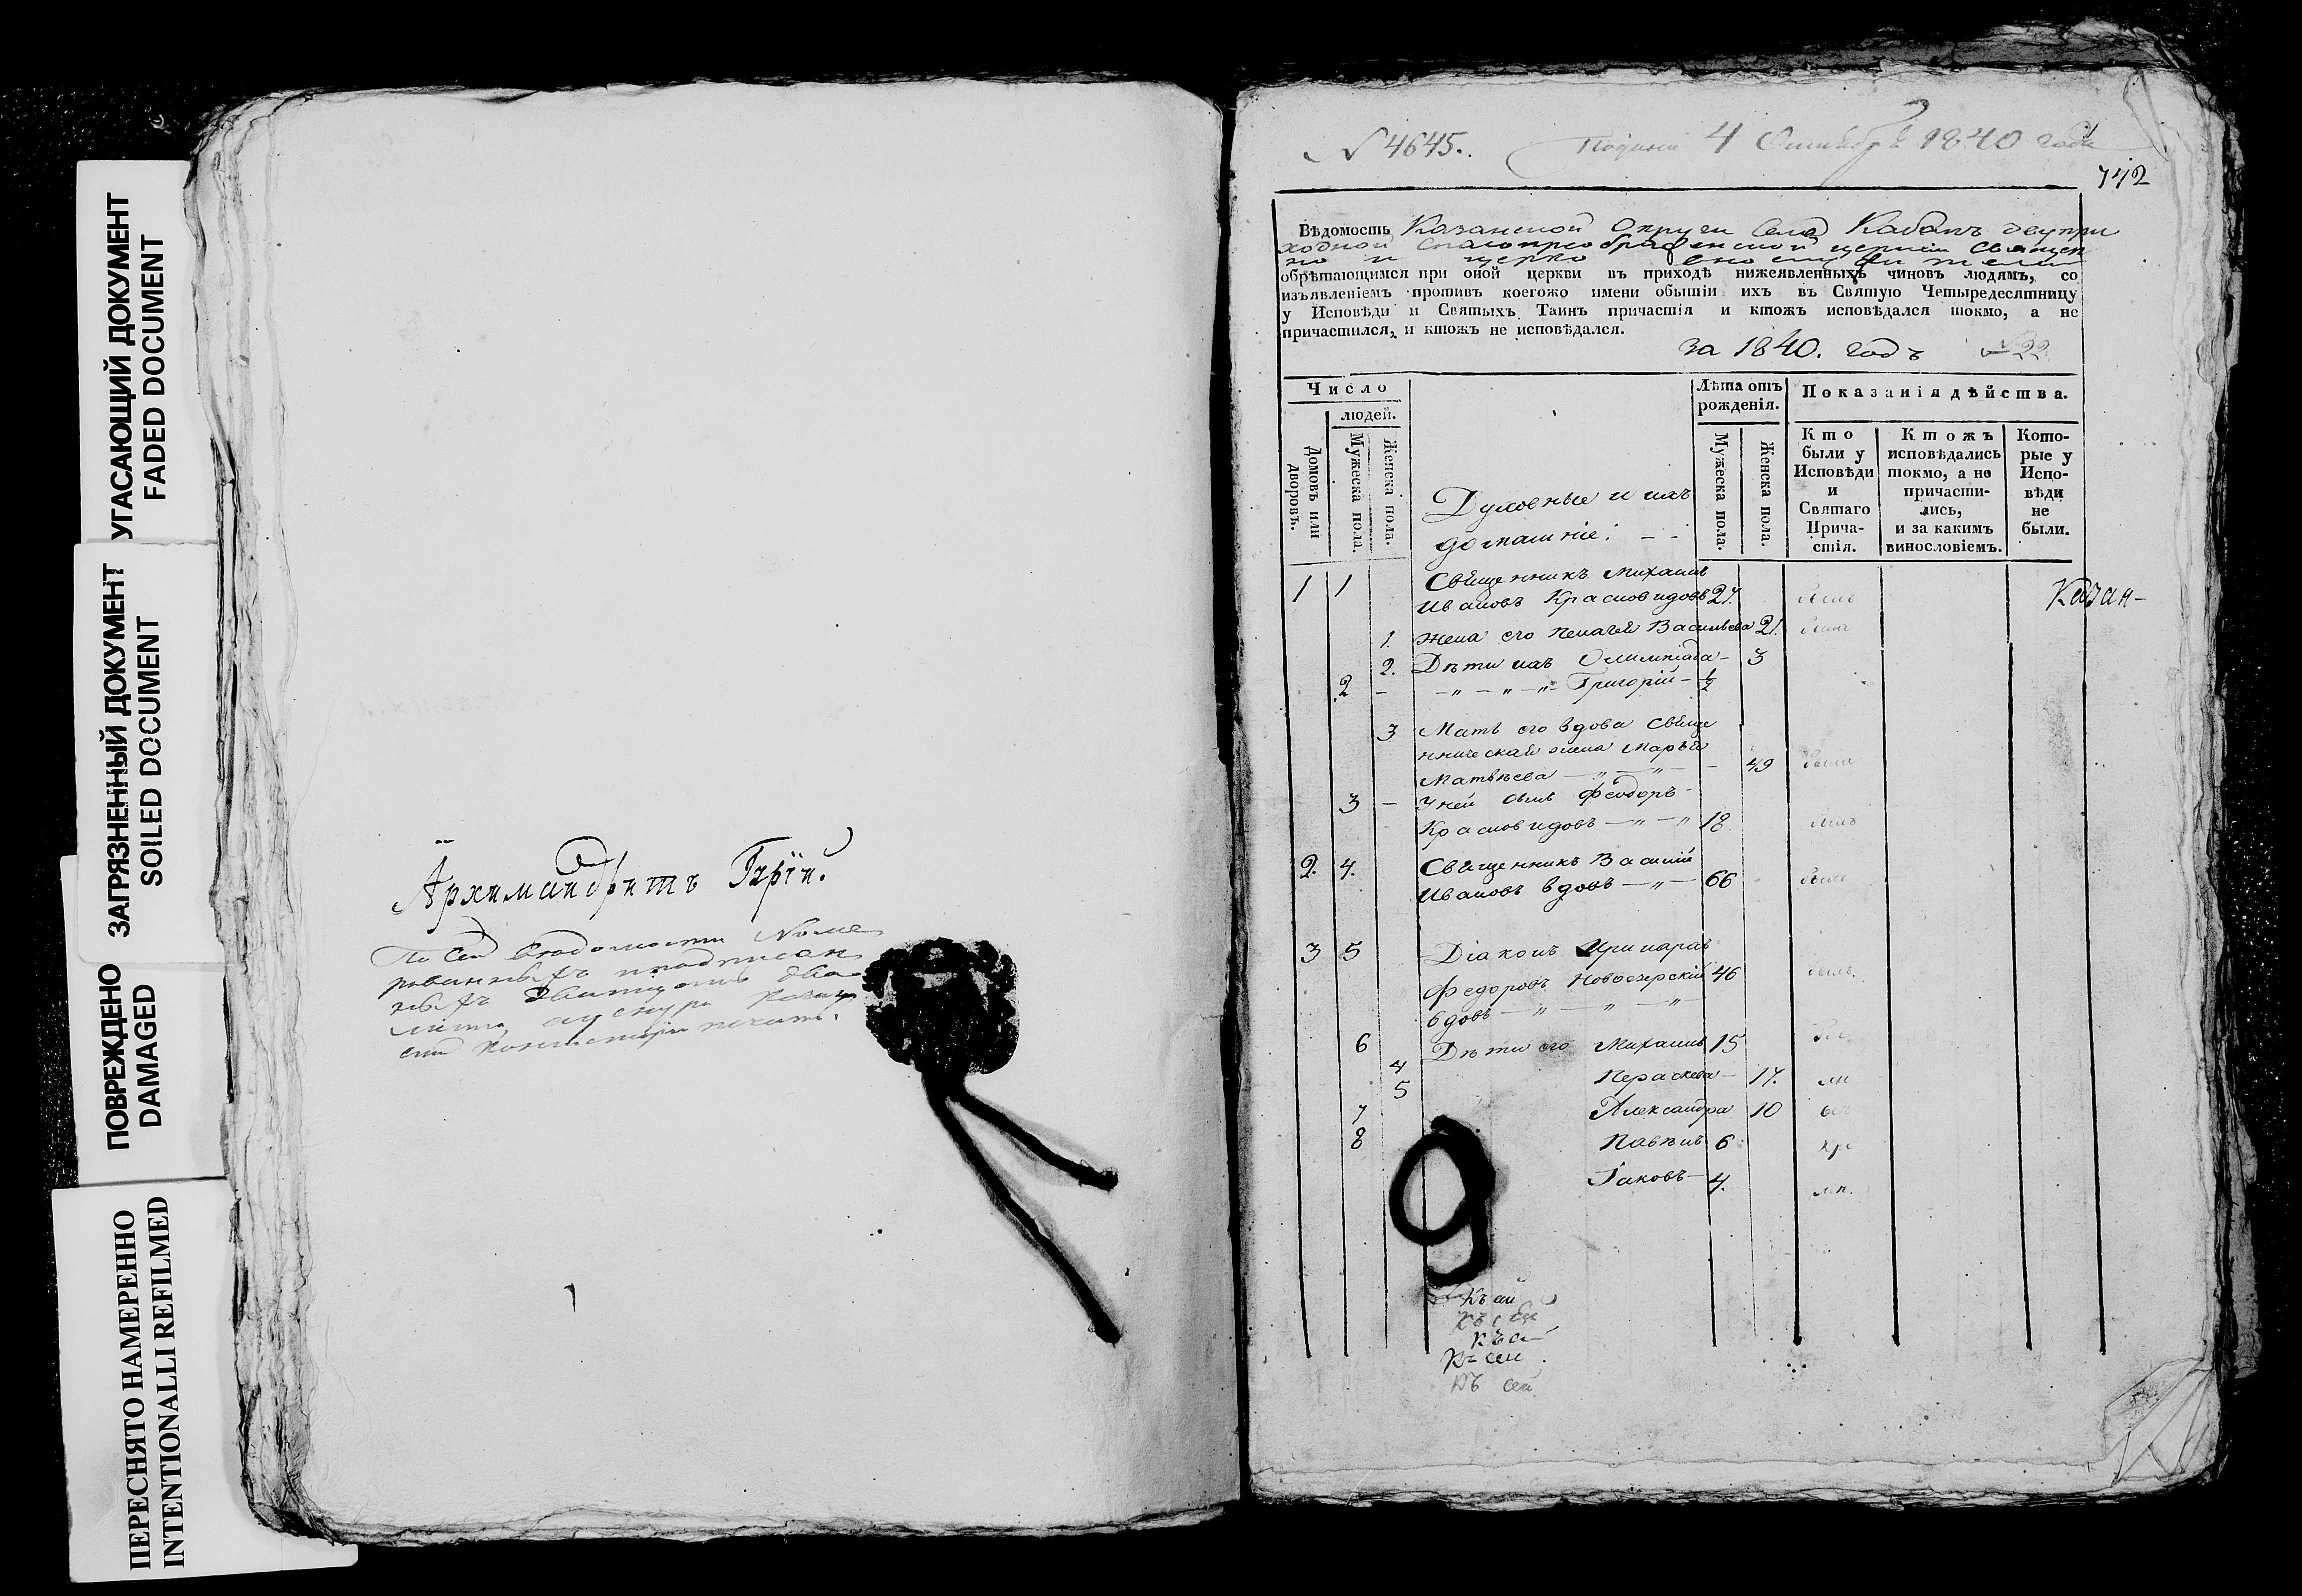 УГАСАЮЩИЙ ДОКУМЕНТ
FADED DOCUMENT
ЗАГРЯЗНЕННЫЙ ДОКУМЕНТ
SOILED DOCUMENT
ПОВРЕЖДЕНО
DAMAGED
ПЕРЕСНЯТО НАМЕРЕННО
INTENTIONALLI REFILMED
Архимандритъ Гурій.
По сей вѣдомости
листа,
Консисторіи печать.
N 4645. 4 Октября 1840 года
742
Вѣдомость Казанской Округи Села Кабанъ
Спасопреображенской церкви Священ
но и церко
обрѣтающимся при оной церкви въ приходѣ нижеявленныхъ чиновъ людямъ, со
изъявленіемъ противъ коегожо имени обытіи ихъ въ Святую Четыредесятницу
у Исповѣди и Святыхъ Таинъ причастія и ктожъ исповѣдался токмо, а не
причастился, и ктожъ не исповѣдался.
за 1840. годъ №22
Число
людей.
Домовъ или дворовъ.
Мужеска пола.
Женска пола.
Духовные и ихъ
домашніе.
Лѣта отъ
рожденія.
Мужеска пола.
Женска пола.
Показанія дѣйства.
Кто
были у
Исповѣди
и
Святаго
Прича-
стія.
Ктожъ
исповѣдались
токмо, а не
причасти-
лись,
и за какимъ
винословіемъ.
Кото-
рые у
Испо-
вѣди
не
были.
1 1 Священникъ Михаилъ
Ивановъ Красновидовъ 27. Казан-
1. Жена его Пелагея Васильева 21. была
2. Дѣти ихъ Олимпіада 3
2 Григорій ½
3 Мать его вдова Свяще
нническая жена Марья
Матвѣева 49 была
3 У ней сынъ Феодоръ
Красновидовъ 18
2. 4. Священникъ Василій
Ивановъ вдовъ 66 былъ
3 5 Діаконъ Иринархъ
Федоровъ 46 былъ.
вдовъ
6 Дѣти его Михаилъ 15
4 Пераскева 17.
5 Александра 10
7 Павелъ 6
8 Іаковъ 4.
9
Къ сей
Къ сей
Къ сей